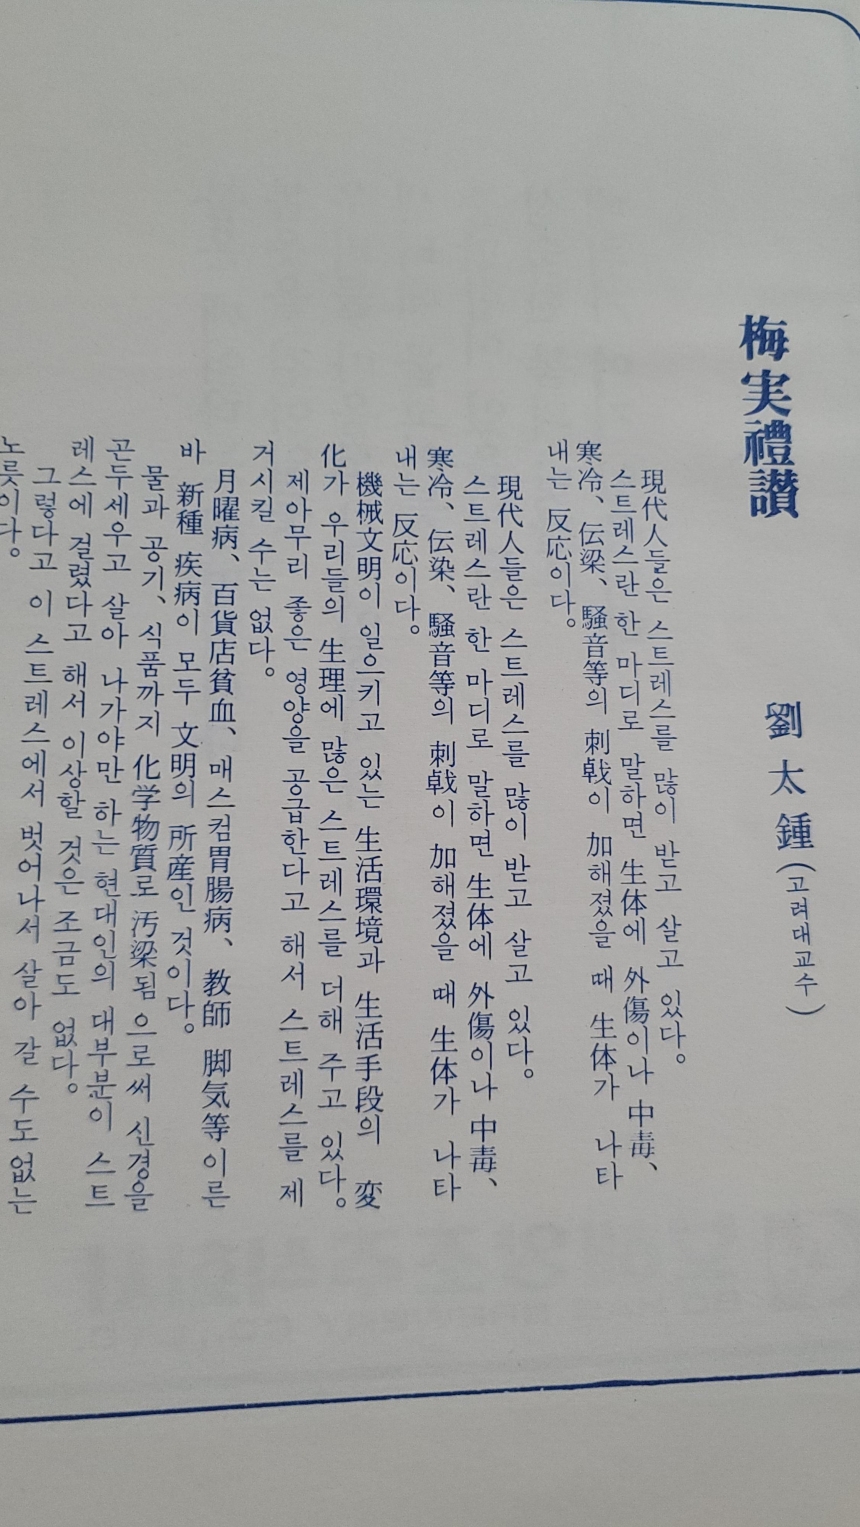 梅実禮讃
劉太鍾(고려대교수)
現代人들은 스트레스를 많이 받고 살고 있다。
스트레스란 한 마디로 말하면 生体에 外傷이나 中毒、
寒冷、伝梁、騷音等의 刺戟이 加해졌을 때 生体가 나타
내는 反応이다。
現代人들은 스트레스를 많이 받고 살고 있다。
스트레스란 한 마디로 말하면 生体에 外傷이나 中毒、
寒冷、伝染、騷音等의 刺戟이 加해졌을 때 生体가 나타
내는 反応이다。
機械文明이 일으키고 있는 生活環境과 生活手段의 変
化가 우리들의 生理에 많은 스트레스를 더해 주고 있다。
제아무리 좋은 영양을 공급한다고 해서 스트레스를 제
거시킬 수는 없다。
月曜病、百貨店貧血、매스컴胃腸病、教師 脚気等 이른
바 新種 疾病이 모두 文明의 所産인 것이다。
물과 공기、식품까지 化学物質로 汚梁됨 으로써 신경을
곤두세우고 살아 나가야만 하는 현대인의 대부분이 스트
레스에 걸렸다고 해서 이상할 것은 조금도 없다。
그렇다고 이 스트레스에서 벗어나서 살아 갈 수도없는
노릇이다。